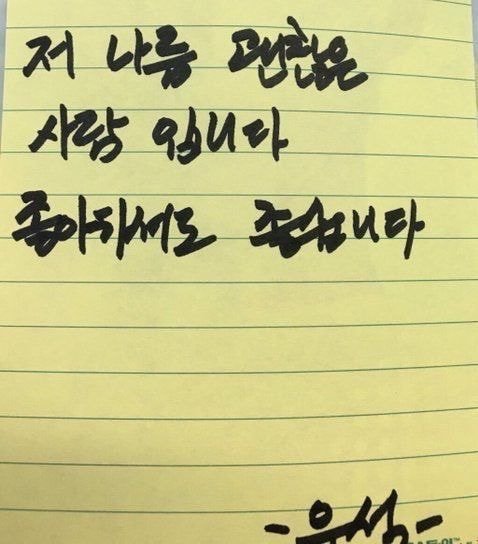 저 나름 괜찮은
사람 입니다
좋아하셔도 좋습니다
-유성-